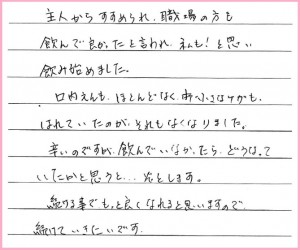 主人からすすめられ、職場の方も
飲んで良かったと言われ私も！と思い
飲み始めました。
口内えんも、ほとんどなく、
はれていたのが、それもなくなりました。
辛いのですが、飲んでいなかったら、どうなって
いたかと思うと…
続ける事でもっと良くなれると思いますので、
続けていきたいです。